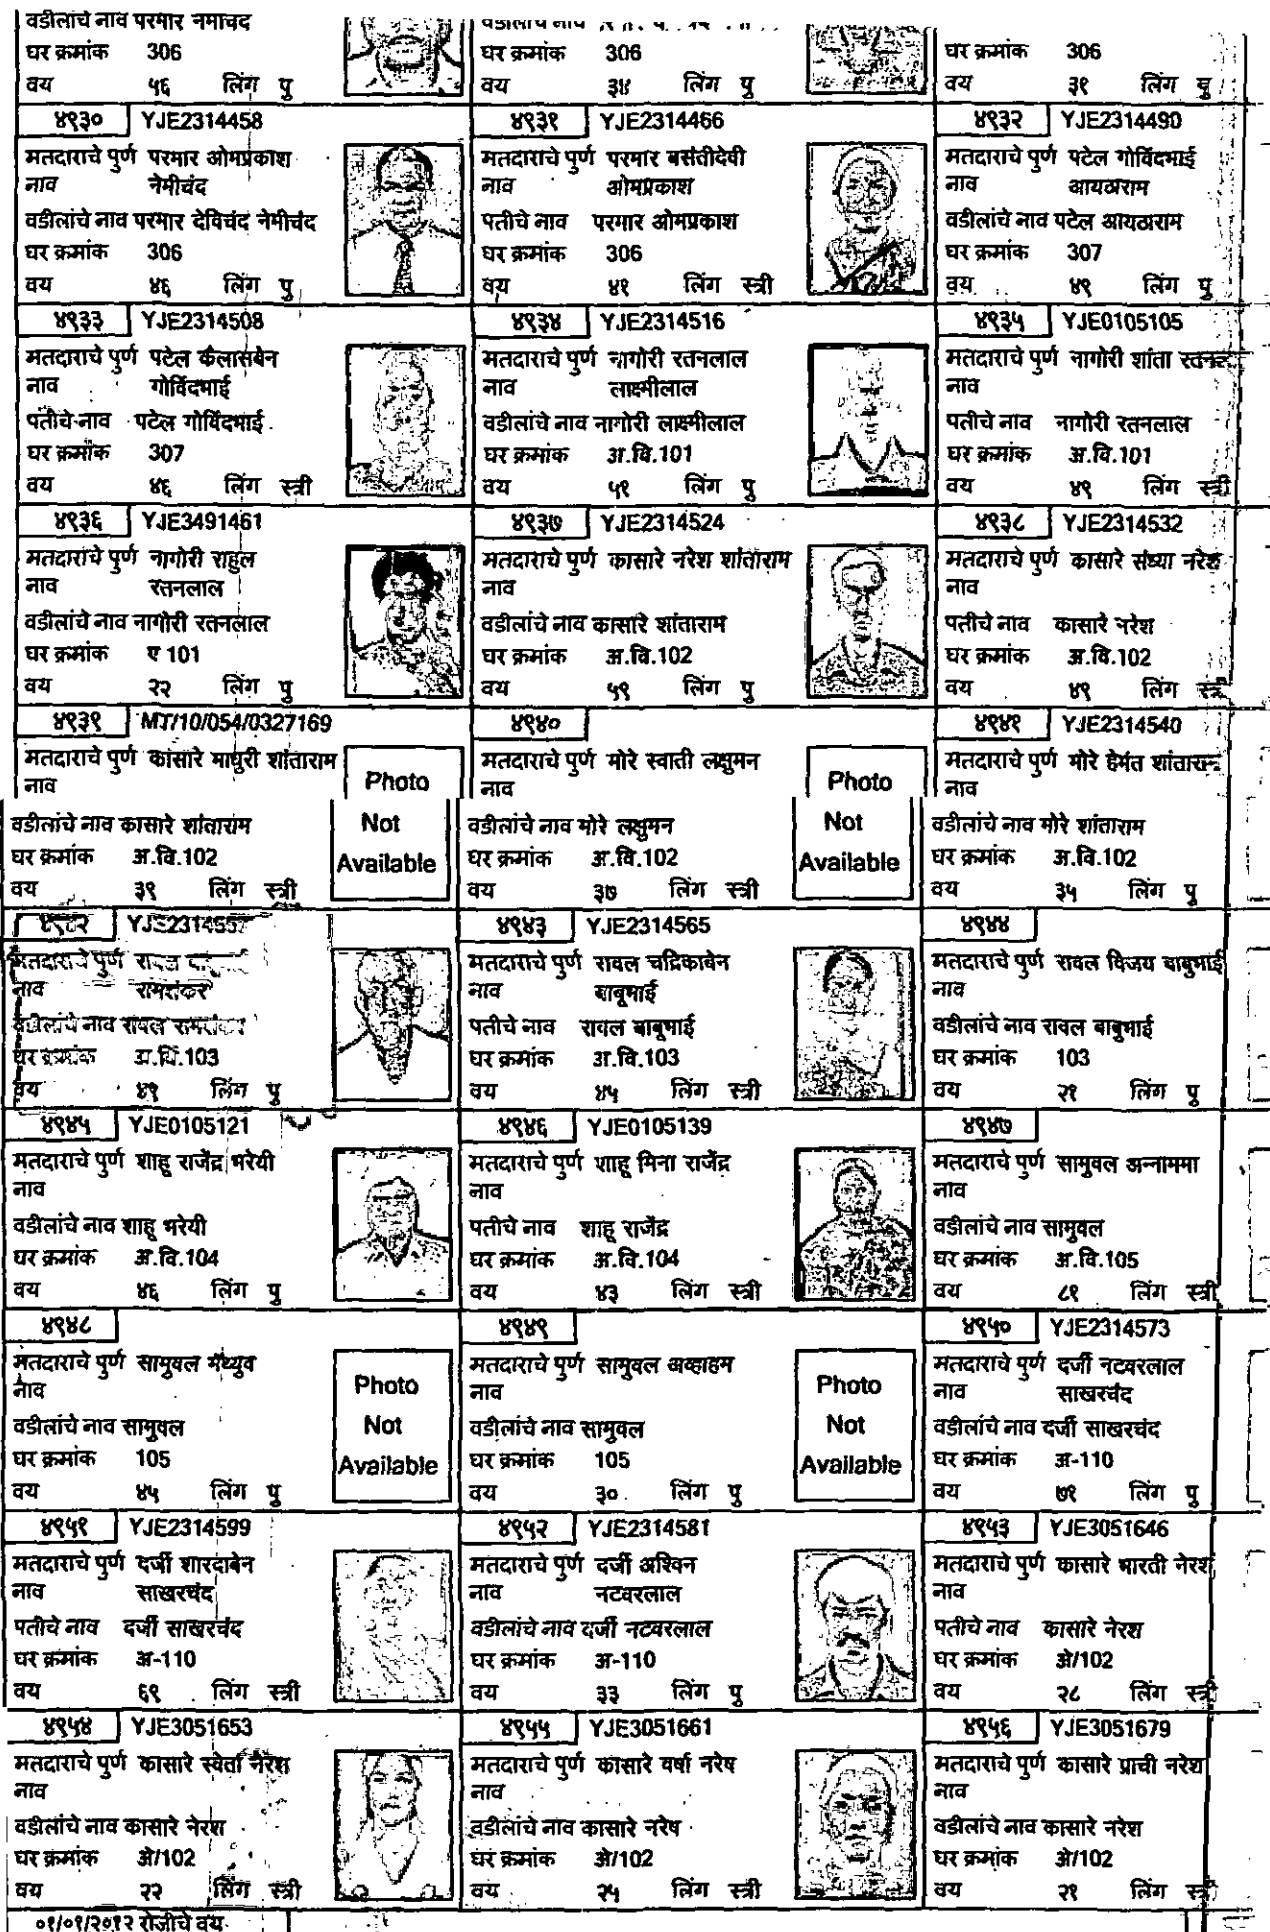 वडीलांचे नाव परमार नेमीचंद
घर क्रमांक 306
वय ५६ लिंग पु
घर क्रमांक 306
वय ३४ लिंग पु
घर क्रमांक 306
वय ३१ लिंग पु
४९३० YJE2314458
मतदाराचे पुर्ण परमार ओमप्रकाश
नाव नेमीचंद
वडीलांचे नाव परमार देविचंद नेमीचंद
घर क्रमांक 306
वय ४६ लिंग पु
४९३१ YJE2314466
मतदाराचे पुर्ण परमार बसंतीदेवी
नाव ओमप्रकाश
पतीचे नाव परमार ओमप्रकाश
घर क्रमांक 306
वय ४१ लिंग स्त्री
४९३२ YJE2314490
मतदाराचे पुर्ण पटेल गोविंदभाई
नाव आयठाराम
वडीलांचे नाव पटेल आयठाराम
घर क्रमांक 307
वय ४९ लिंग पु
४९३३ YJE2314508
मतदाराचे पुर्ण पटेल कैलासबेन
नाव गोविंदभाई
पतीचे नाव पटेल गोविंदभाई
घर क्रमांक 307
वय ४६ लिंग स्त्री
४९३४ YJE2314516
मतदाराचे पुर्ण नागोरी रतनलाल
नाव लाक्ष्मीलाल
वडीलांचे नाव नागोरी लाक्ष्मीलाल
घर क्रमांक अ.वि.101
वय ५१ लिंग पु
४९३५ YJE0105105
मतदाराचे पुर्ण नागोरी शांता
नाव
पतीचे नाव नागोरी रतनलाल
घर क्रमांक अ.वि.101
वय ४९ लिंग स्त्री
४९३६ YJE3491461
मतदाराचे पुर्ण नागोरी राहुल
नाव रतनलाल
वडीलांचे नाव नागोरी रतनलाल
घर क्रमांक ए 101
वय २२ लिंग पु
४९३७ YJE2314524
मतदाराचे पुर्ण कासारे नरेश शांताराम
नाव
वडीलांचे नाव कासारे शांताराम
घर क्रमांक अ.वि.102
वय ५९ लिंग पु
४९३८ YJE2314532
मतदाराचे पुर्ण कासारे संध्या नरेश
नाव
पतीचे नाव कासारे नरेश
घर क्रमांक अ.वि.102
वय ४९ लिंग स्त्री
४९३९ MT/10/054/0327169
मतदाराचे पुर्ण कासारे माधुरी शांताराम
नाव
वडीलांचे नाव कासारे शांताराम
घर क्रमांक अ.वि.102
वय ३९ लिंग स्त्री
Photo
Not
Available
४९४०
मतदाराचे पुर्ण मोरे स्वाती लक्षुमन
नाव
वडीलांचे नाव मोरे लक्षुमन
घर क्रमांक अ.वि.102
वय ३७ लिंग स्त्री
Photo
Not
Available
४९४१ YJE2314540
मतदाराचे पुर्ण मोरे हेमंत शांताराम
नाव
वडीलांचे नाव मोरे शांताराम
घर क्रमांक अ.वि.102
वय ३५ लिंग पु
४९४२
मतदाराचे पुर्ण रावल
नाव रामशंकर
वडीलांचे नाव रावल रामशंकर
घर क्रमांक अ.वि.103
वय ४९ लिंग पु
४९४३ YJE2314565
मतदाराचे पुर्ण रावल चंद्रिकाबेन
नाव बाबूभाई
पतीचे नाव रावल बाबूभाई
घर क्रमांक अ.वि.103
वय ४५ लिंग स्त्री
४९४४
मतदाराचे पुर्ण रावल विजय बाबुभाई
नाव
वडीलांचे नाव रावल बाबुभाई
घर क्रमांक 103
वय २१ लिंग पु
४९४५ YJE0105121
मतदाराचे पुर्ण शाहू राजेंद्र भरेयी
नाव
वडीलांचे नाव शाहू भरेयी
घर क्रमांक अ.वि.104
वय ४६ लिंग पु
४९४६ YJE0105139
मतदाराचे पुर्ण शाहू मिना राजेंद्र
नाव
पतीचे नाव शाहू राजेंद्र
घर क्रमांक अ.वि.104
वय ४३ लिंग स्त्री
४९४७
मतदाराचे पुर्ण सामुवल अन्नाममा
नाव
वडीलांचे नाव सामुवल
घर क्रमांक अ.वि.105
वय ८१ लिंग स्त्री
४९४८
मतदाराचे पुर्ण सामुवल मॅथ्युव
नाव
वडीलांचे नाव सामुवल
घर क्रमांक 105
वय ४५ लिंग पु
Photo
Not
Available
४९४९
मतदाराचे पुर्ण सामुवल अव्हाहम
नाव
वडीलांचे नाव सामुवल
घर क्रमांक 105
वय ३० लिंग पु
Photo
Not
Available
४९५० YJE2314573
मतदाराचे पुर्ण दर्जी नटवरलाल
नाव साखरचंद
वडीलांचे नाव दर्जी साखरचंद
घर क्रमांक अ-110
वय ७१ लिंग पु
४९५१ YJE2314599
मतदाराचे पुर्ण दर्जी शारदाबेन
नाव साखरचंद
पतीचे नाव दर्जी साखरचंद
घर क्रमांक अ-110
वय ६९ लिंग स्त्री
४९५२ YJE2314581
मतदाराचे पुर्ण दर्जी अश्विन
नाव नटवरलाल
वडीलांचे नाव दर्जी नटवरलाल
घर क्रमांक अ-110
वय ३३ लिंग पु
४९५३ YJE3051646
मतदाराचे पुर्ण कासारे भारती नेरश
नाव
पतीचे नाव कासारे नेरश
घर क्रमांक अे/102
वय २८ लिंग स्त्री
४९५४ YJE3051653
मतदाराचे पुर्ण कासारे स्वेता नेरश
नाव
वडीलांचे नाव कासारे नेरश
घर क्रमांक अे/102
वय २२ लिंग स्त्री
४९५५ YJE3051661
मतदाराचे पुर्ण कासारे वर्षा नरेष
नाव
वडीलांचे नाव कासारे नरेष
घर क्रमांक अे/102
वय २५ लिंग स्त्री
४९५६ YJE3051679
मतदाराचे पुर्ण कासारे प्राची नरेश
नाव
वडीलांचे नाव कासारे नरेश
घर क्रमांक अे/102
वय २१ लिंग स्त्री
०१/०१/२०१२ रोजीचे वय